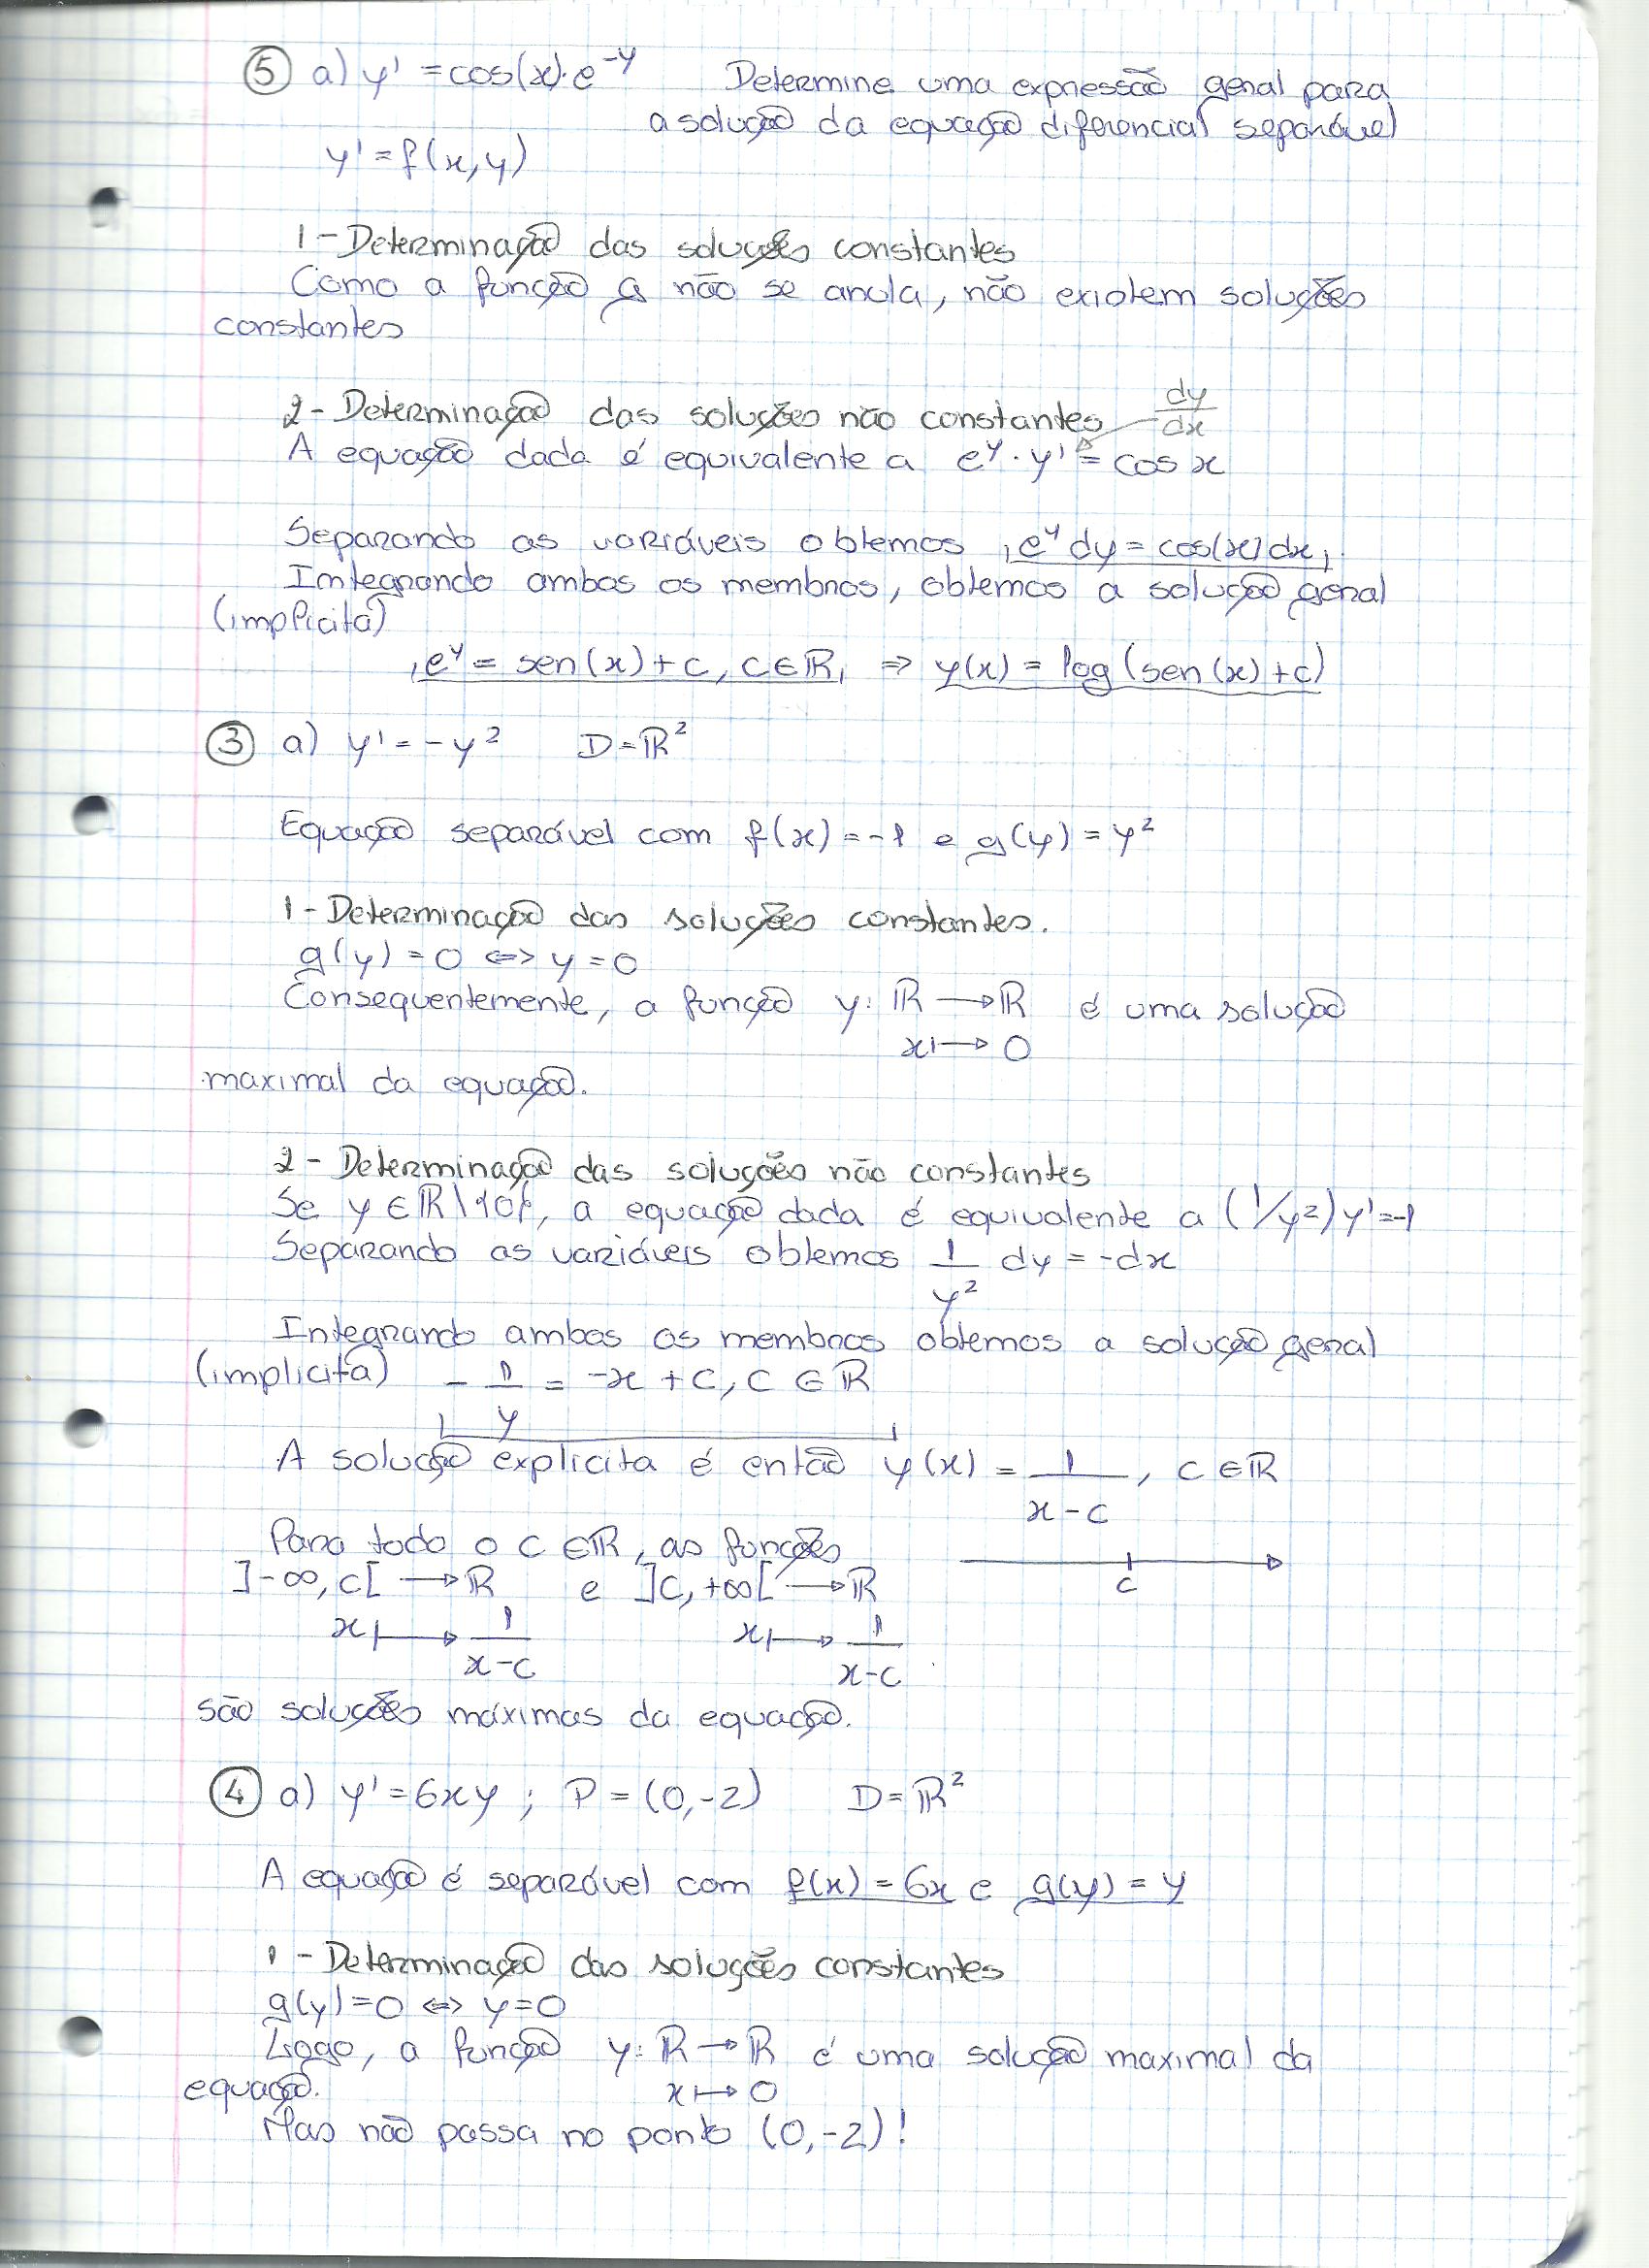 ⑤ a) y' = cos(x)·e^{-y} Determine uma expressão geral para
a solução da equação diferencial separável
y' = f(x,y)
1 - Determinação das soluções constantes
Como a função g não se anula, não existem soluções
constantes
2 - Determinação das soluções não constantes dy/dx
A equação dada é equivalente a e^y · y' = cos x
Separando as variáveis obtemos e^y dy = cos(x) dx
Integrando ambos os membros, obtemos a solução geral
(implicita)
e^y = sen(x) + c, c ∈ ℝ ⇒ y(x) = log(sen(x) + c)
③ a) y' = -y² D = ℝ²
Equação separável com f(x) = -1 e g(y) = y²
1 - Determinação das soluções constantes.
g(y) = 0 ⇔ y = 0
Consequentemente, a função y: ℝ → ℝ é uma solução
x ↦ 0
maximal da equação.
2 - Determinação das soluções não constantes
Se y ∈ ℝ\{0}, a equação dada é equivalente a (1/y²) y' = -1
Separando as variáveis obtemos 1/y² dy = -dx
Integrando ambos os membros obtemos a solução geral
(implicita) - 1/y = -x + C, C ∈ ℝ
A solução explicita é então y(x) = 1/(x - c), C ∈ ℝ
Para todo o C ∈ ℝ, as funções
]-∞, C[ → ℝ e ]C, +∞[ → ℝ
c
x ↦ 1/(x-c) x ↦ 1/(x-c)
são soluções máximas da equação.
④ a) y' = 6xy ; P = (0,-2) D = ℝ²
A equação é separável com f(x) = 6x e g(y) = y
1 - Determinação das soluções constantes
g(y) = 0 ⇔ y = 0
Logo, a função y: ℝ → ℝ é uma solução maximal da
equação. x ↦ 0
Mas não passa no ponto (0,-2)!